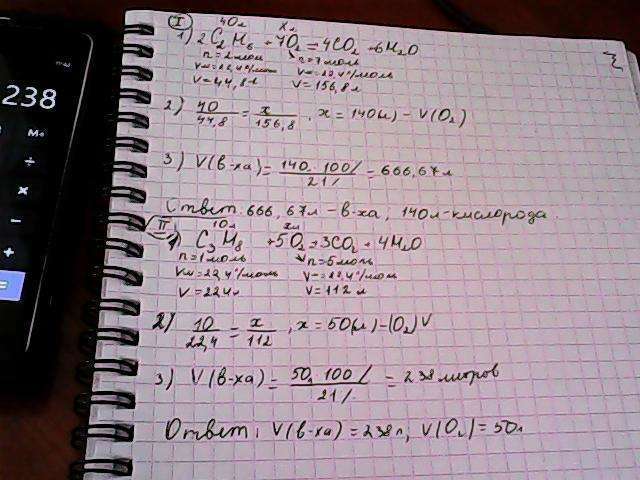 238
M₊
÷
×
−
+
=
I
40л xл
1) 2C₂H₆ + 7O₂ = 4CO₂ + 6H₂O
n=2моль n=7моль
Vм=22,4 л/моль Vм=22,4 л/моль
V=44,8л V=156,8л
2) 40/44,8 = x/156,8, x=140(л) – V(O₂)
3) V(в-ха) = 140·100%/21% = 666,67л
Ответ: 666,67л – в-ха, 140л – кислорода.
II
10л xл
1) C₃H₈ + 5O₂ = 3CO₂ + 4H₂O
n=1моль n=5моль
Vм=22,4 л/моль Vм=22,4 л/моль
V=22,4л V=112л
2) 10/22,4 = x/112, x=50(л) – (O₂)V
3) V(в-ха) = 50·100%/21% = 238 литров
Ответ: V(в-ха) = 238л, V(O₂) = 50л